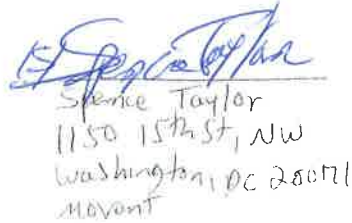 /s/ Spence Taylor
Spence Taylor
1150 15th St, NW
Washington, DC 20071
Movant